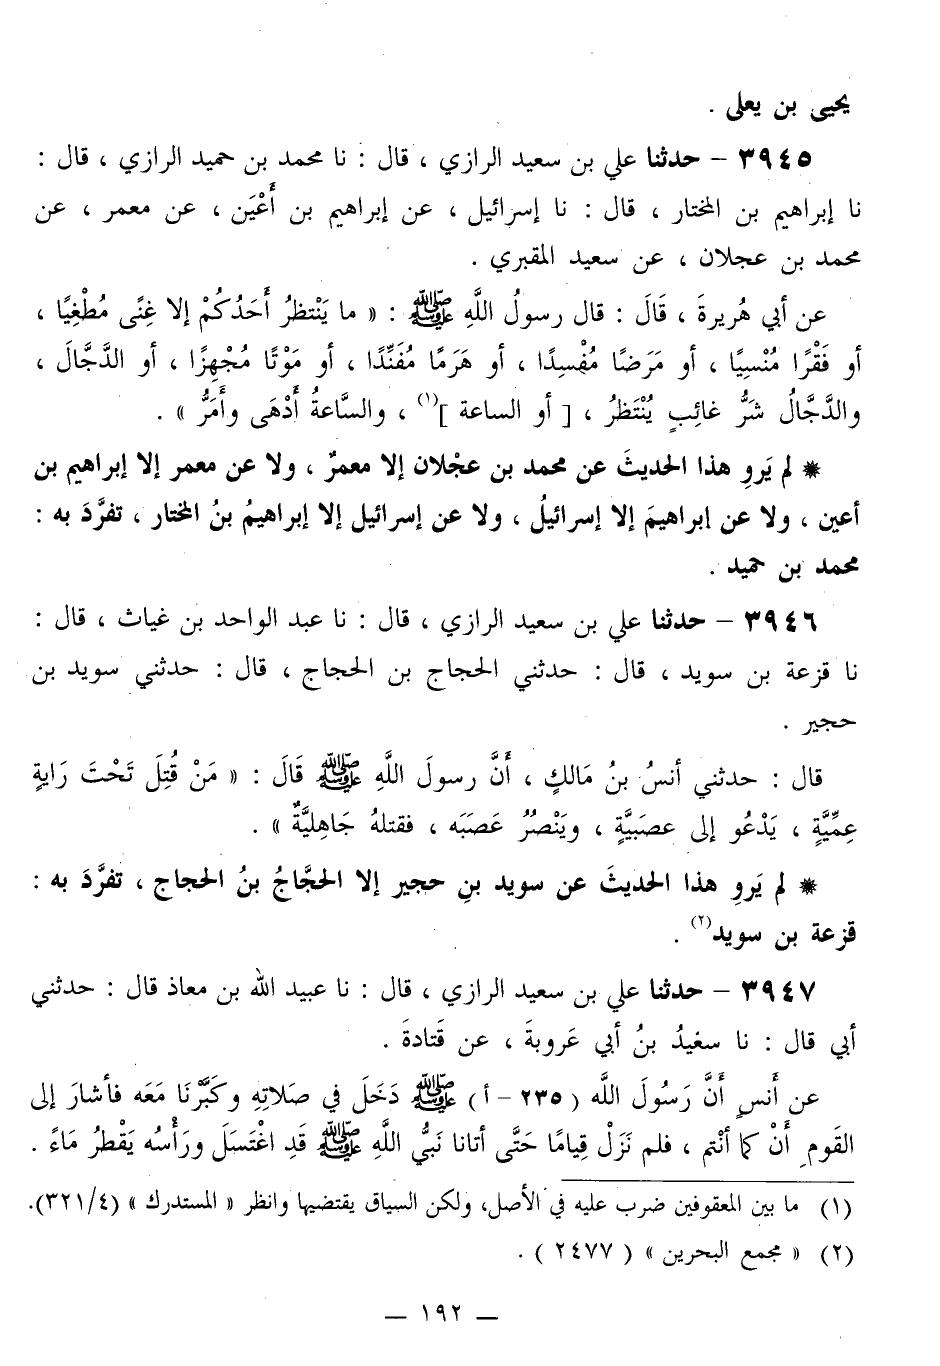 يحيى بن يعلى .
٣٩٤٥ – حدثنا علي بن سعيد الرازي ، قال : نا محمد بن حميد الرازي ، قال :
نا إبراهيم بن المختار ، قال : نا إسرائيل ، عن إبراهيم بن أَعْيَن ، عن معمر ، عن
محمد بن عجلان ، عن سعيد المقبري .
عن أبي هُريرةَ ، قَالَ : قال رسولُ اللَّهِ ﷺ : « ما يَنْتظرُ أَحَدُكُمْ إلا غِنًى مُطْغِيًا ،
أو فَقْرًا مُنْسِيًا ، أو مَرَضًا مُفْسِدًا ، أو هَرَمًا مُفَنِّدًا ، أو مَوْتًا مُجْهِزًا ، أو الدَّجَّالَ ،
والدَّجَّالُ شَرُّ غائبٍ يُنْتَظرُ ، [ أو الساعة ](١) ، والسَّاعةُ أَدْهَى وأَمَرُّ » .
* لم يَروِ هذا الحديثَ عن محمد بن عجْلان إلا معمرٌ ، ولا عن معمر إلا إبراهيم بن
أعين ، ولا عن إبراهيمَ إلا إسرائيلُ ، ولا عن إسرائيل إلا إبراهيمُ بنُ المختار ، تفرَّدَ به :
محمد بن حميد .
٣٩٤٦ – حدثنا علي بن سعيد الرازي ، قال : نا عبد الواحد بن غياث ، قال :
نا قزعة بن سويد ، قال : حدثني الحجاج بن الحجاج ، قال : حدثني سويد بن
حجير .
قال : حدثني أنسُ بنُ مَالكٍ ، أَنَّ رسولَ اللَّهِ ﷺ قَالَ : « مَنْ قُتِلَ تَحْتَ رَايةٍ
عِمِّيَّةٍ ، يَدْعُو إلى عصَبيَّةٍ ، ويَنْصُرُ عَصَبَه ، فقتلهُ جَاهِليَّةٌ » .
* لم يَروِ هذا الحديثَ عن سويد بنِ حجير إلا الحجَّاجُ بنُ الحجاج ، تفرَّدَ به :
قزعة بن سويد(٢) .
٣٩٤٧ – حدثنا علي بن سعيد الرازي ، قال : نا عبيد الله بن معاذ قال : حدثني
أبي قال : نا سعيدُ بنُ أبي عَروبةَ ، عن قَتادةَ .
عن أنسٍ أَنَّ رَسُولَ اللَّه ( ٢٣٥ – أ ) ﷺ دَخَلَ في صَلاتِهِ وكَبَّرْنَا مَعَه فأشارَ إلى
القَومِ أَنْ كما أنْتم ، فلم نَزَلْ قِيامًا حَتَّى أتانا نَبيُّ اللَّهِ ﷺ قَدِ اغْتَسَلَ ورَأْسُه يَقْطرُ مَاءً .
(١) ما بين المعقوفين ضرب عليه في الأصل، ولكن السياق يقتضيها وانظر « المستدرك » (٣٢١/٤).
(٢) « مجمع البحرين » ( ٢٤٧٧ ) .
— ١٩٢ —